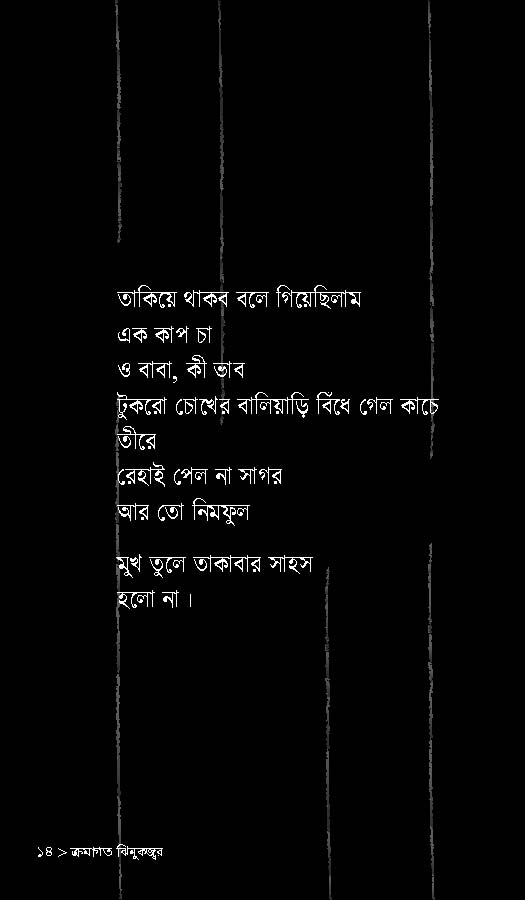 তাকিয়ে থাকব বলে গিয়েছিলাম
এক কাপ চা
ও বাবা, কী ভাব
টুকরো চোখের বালিয়াড়ি বিঁধে গেল কাচে
তীরে
রেহাই পেল না সাগর
আর তো নিমফুল
মুখ তুলে তাকাবার সাহস
হলো না।
১৪ > ক্রমাগত ঝিনুকজ্বর